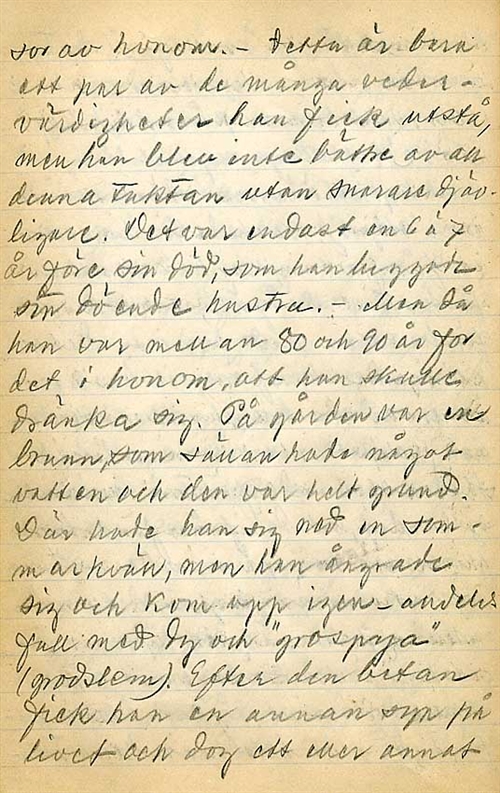 sor av honom. – Detta är bara
ett par av de många veder-
värdigheter han fick utstå,
men han blev inte bättre av all
denna tuktan utan snarare djäv-
ligare. Det var endast en 6 à 7
år före sin död, som han huggade
sin döende hustru. – Men då
han var mellan 80 och 90 år for
det i honom, att han skulle
dränka sig. På gården var en
brunn, som sällan hade något
vatten och den var helt grund.
Där hade han sig ned en som-
markväll, men han ångrade
sig och kom upp igen – andeles
full med dy och "grospyja"
(grodslem). Efter den betan
fick han en annan syn på
livet och dog ett eller annat